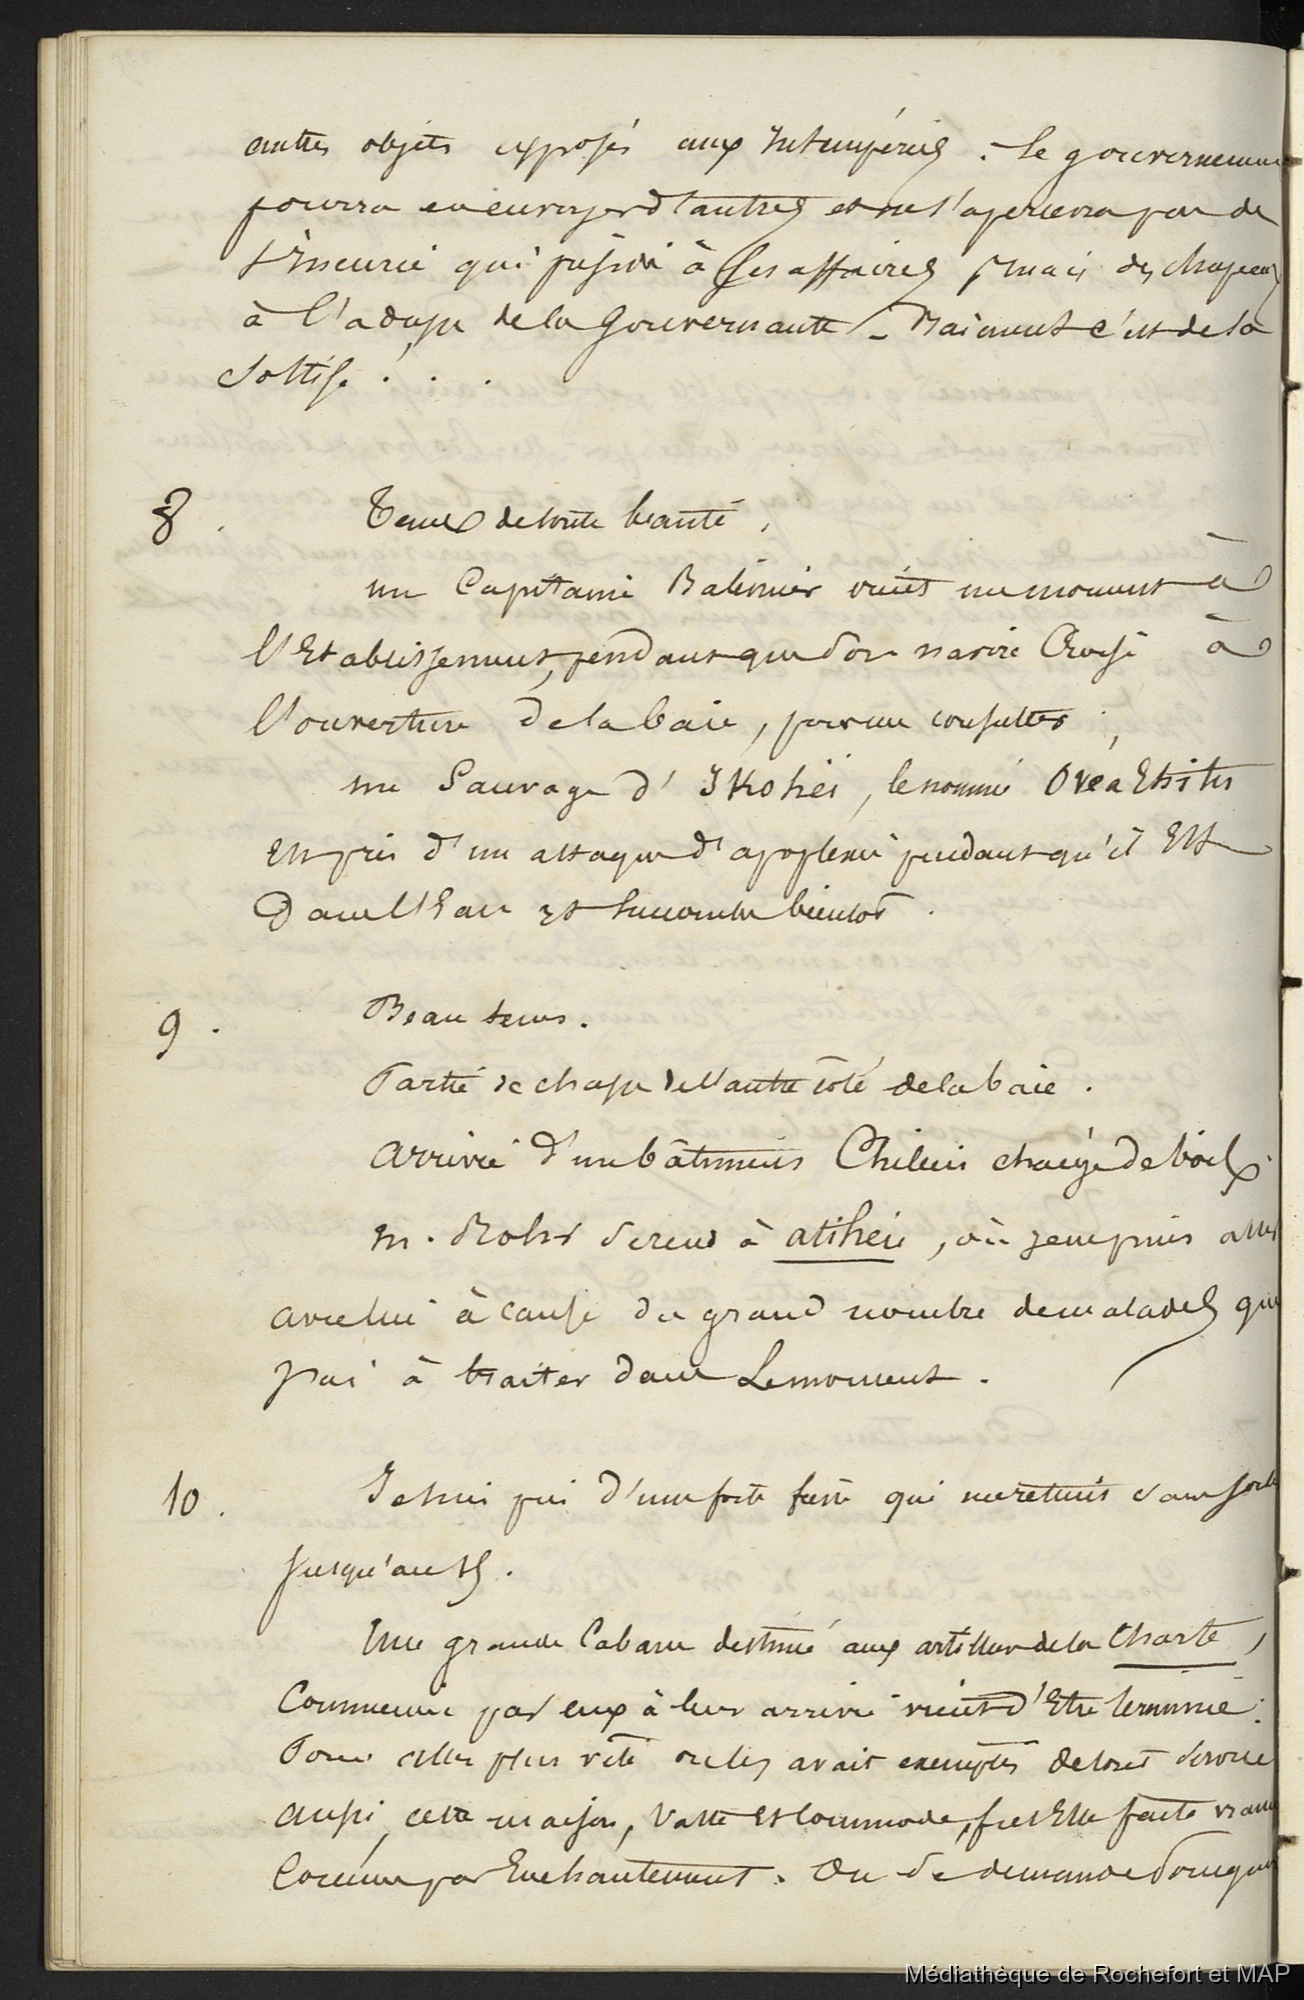 autres objets exposés aux Intempéries : le gouvernement
pourra en envoyer d'autres et ne s'apercevra pas de
l'Incurie qui préside à Ses affaires, mais des chapeaux
à l'adresse de la Gouvernante - Vraiment c'est de la
Sottise . . .
8 . Tems de toute beauté,
un Capitaine Baleinier vient un moment à
l'Etablissement, pendant que Son navire Croise à
l'ouverture de la baie, pour me consulter ;
un Sauvage d' Ikohëi, le nommé Ovéa Ehitu
est pris d'un attaque d'apoplexie pendant qu'il Est
Dans l'Eau et Succombe bientot .
9 . Beau tems .
Partie de chasse de l'autre coté de la baie .
arrivée d'un bâtiment Chilien chargé de bois .
M . Rohr Se rend à atihëu, où je ne puis aller
avec lui à cause du grand nombre de malades que
J'ai à traiter dans Le moment .
10 . Je suis pris d'une forte fièvre qui me retient sans sortir
Jusqu'au 15 .
Une grande Cabane destinée aux artilleurs de la Charte,
Commencée par eux à leur arrivée vient d'Etre terminée .
Pour aller plus vite on les avait exemptés de tout Service
aussi, cette maison, Vaste Et Commode, fut Elle faite
Comme par Enchantement . On Se demande Pourquoi